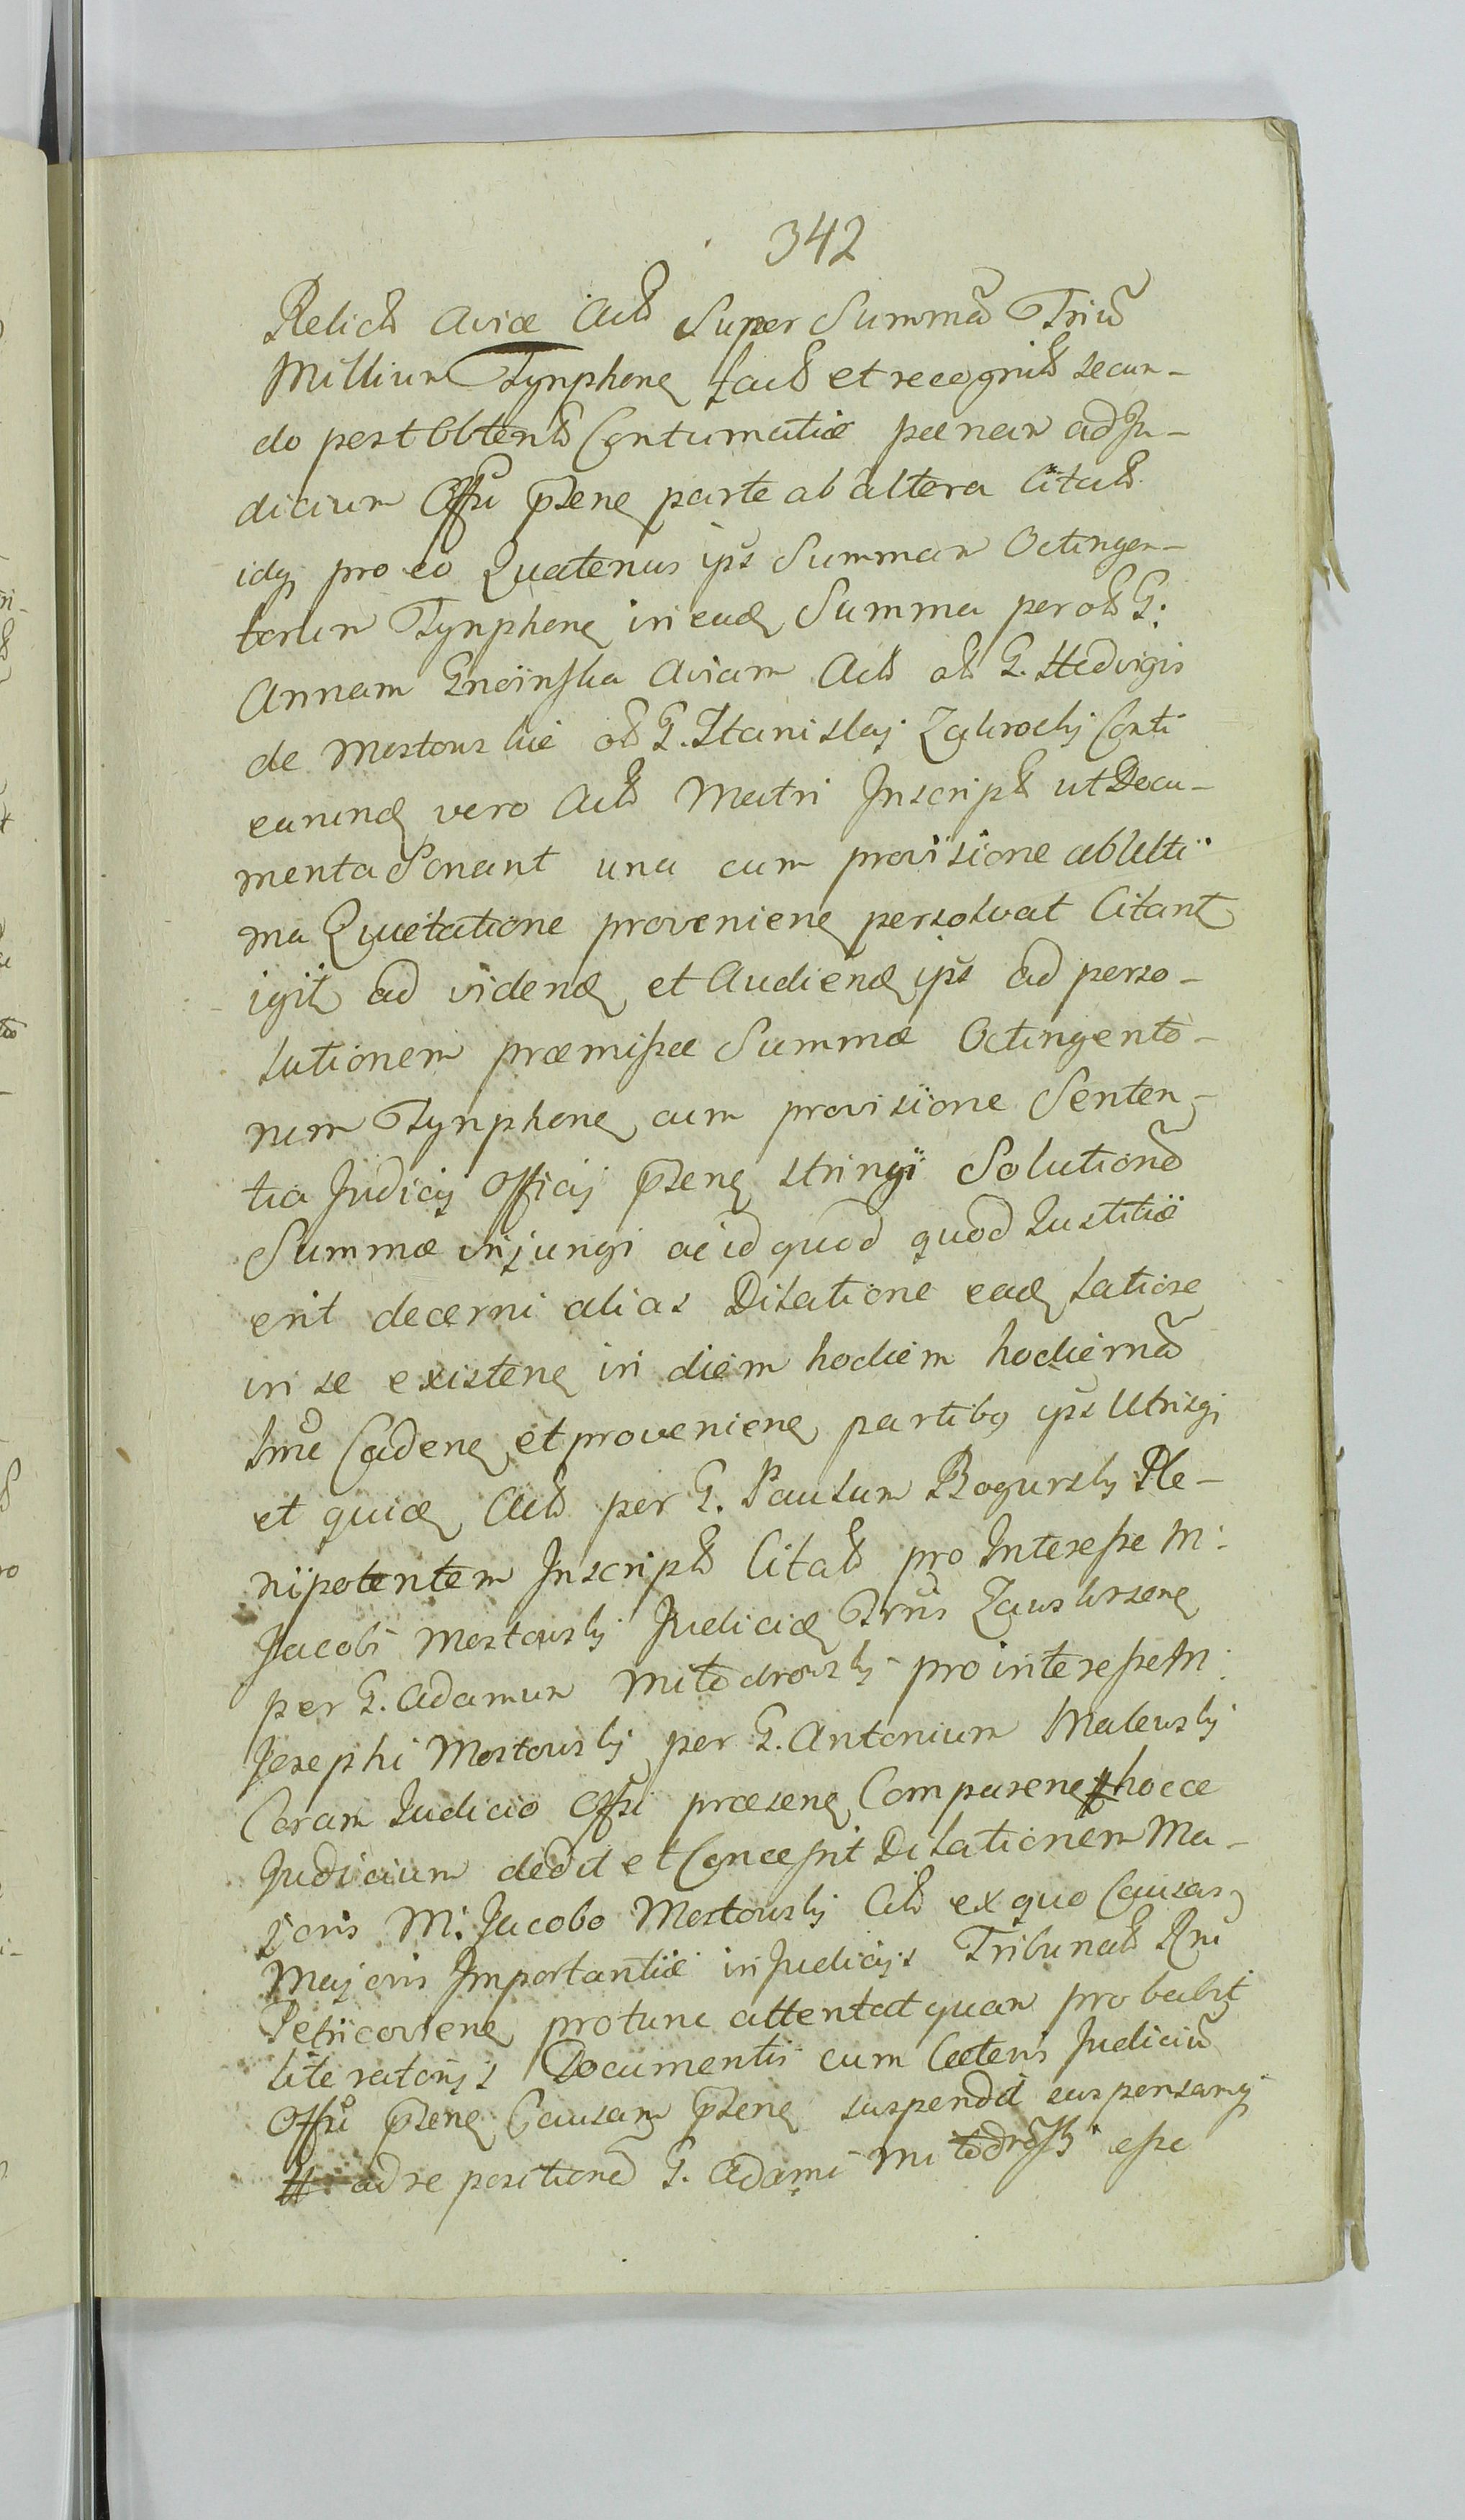 342
Relict Aviæ Act Super Summã Triũ
Millium Tynphone fact et recognit secun-
do post Obtent Contumatiæ pænam ad Ju-
dicium Offĩi p̃sene parte ab altera Citat
idq pro eo Quatenus ip̃s Summam Octingen-
torum Tynphone in eade Summa per ol G:
Annam Gnoinska Aviam Act ol G. Hedvigis
de Mostowskie ol G. Stanislaj Zakrocky Conti
earund vero Act Matri Inscript ut Docu-
menta Sonant una cum provisione ab Ulti
ma Quietatione proveniene persolvat Citant
igit ad videnđ et Audiend ip̃s ad perso-
lutionem præmissæ Summæ Octingento-
rum Tynphone cum provisione Senten-
tia Judicij Officij p̃sene stringi Solutionẽ
Summæ injungi ac id quod quod Justitiæ
erit decerni alias Dilatione eade latiore
in se existene in diem hodiem hodiernã
Cadene et proveniene partibq ip̃s Utrisq
et quide Act per G. Paulum Bogursky Ple-
nipotentem Inscript Citat pro Interesse M:
Jacobi Mostowsky Judicid Trris Zawskrsene
per G. Adamum Mitodrowsky pro interesse M:
Josephi Mostowsky per G. Antonium Malewsky
Coram Judicio Offĩi præsene Comparene hocce
Judicium dedit et Concessit Dilationem Ma-
joris M: Jacobo Mostowsky Cit ex quo Causas
Majoris Importantiæ in Judicijs Tribunal Rni
Petricoviene pro tunc attentat quam probabit
literatorijs Documentis cum Cæteris Judiciũ
Offĩi p̃sene Causam p̃sene suspendit suspensamq
ad repositionẽ G. Adami Mitodrowski esse